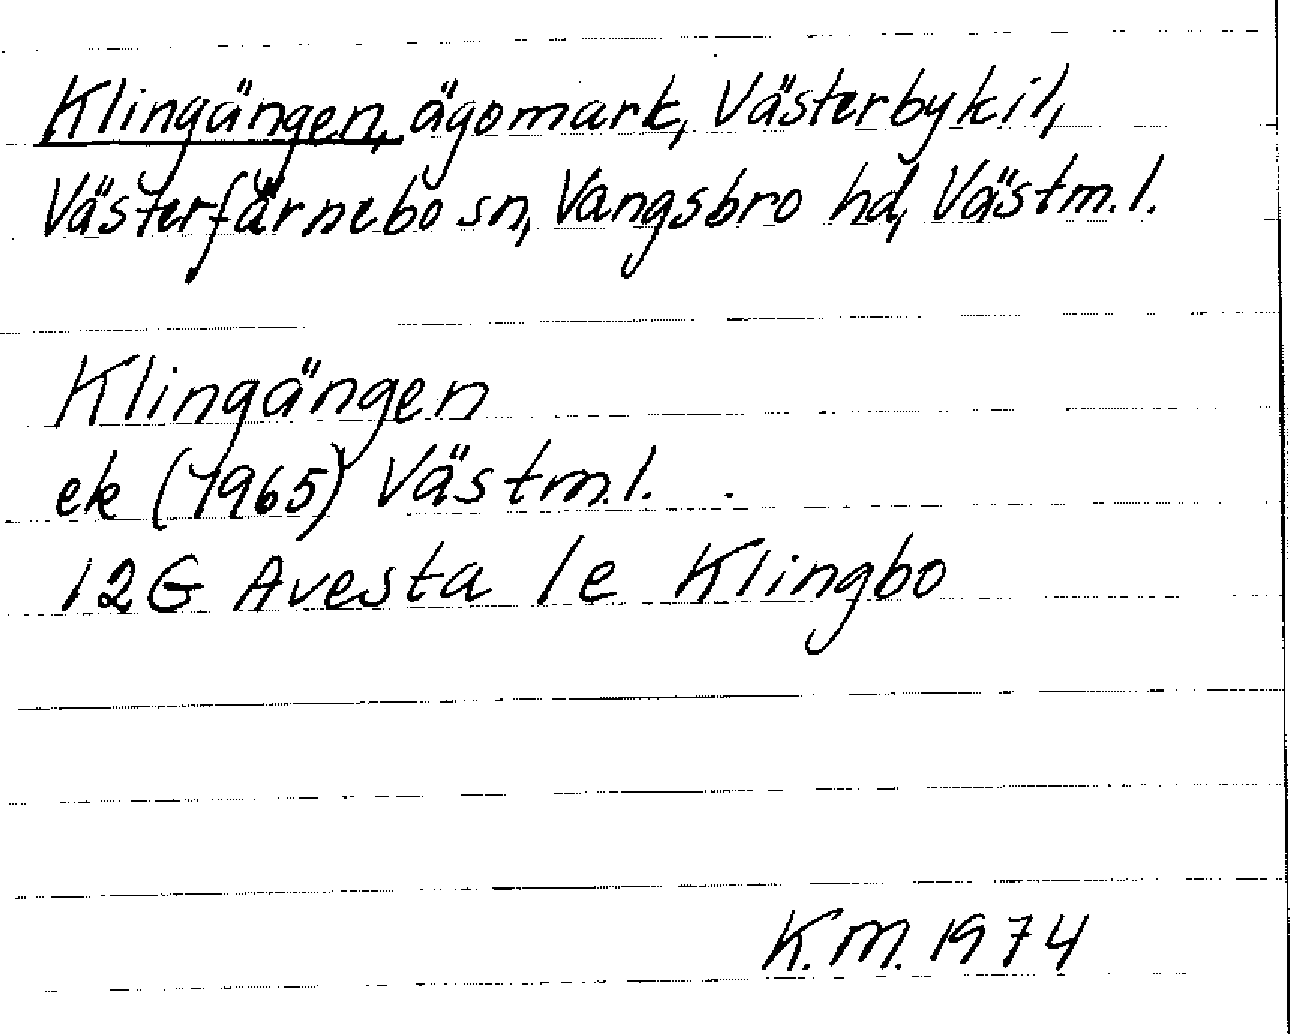 Klingängen, ägomark, Västerbykil,
Västerfärnebo sn, Vangsbro hd, Västm.l.
Klingängen
ek (1965) Västm.l.
12G Avesta 1e Klingbo
K.M. 1974